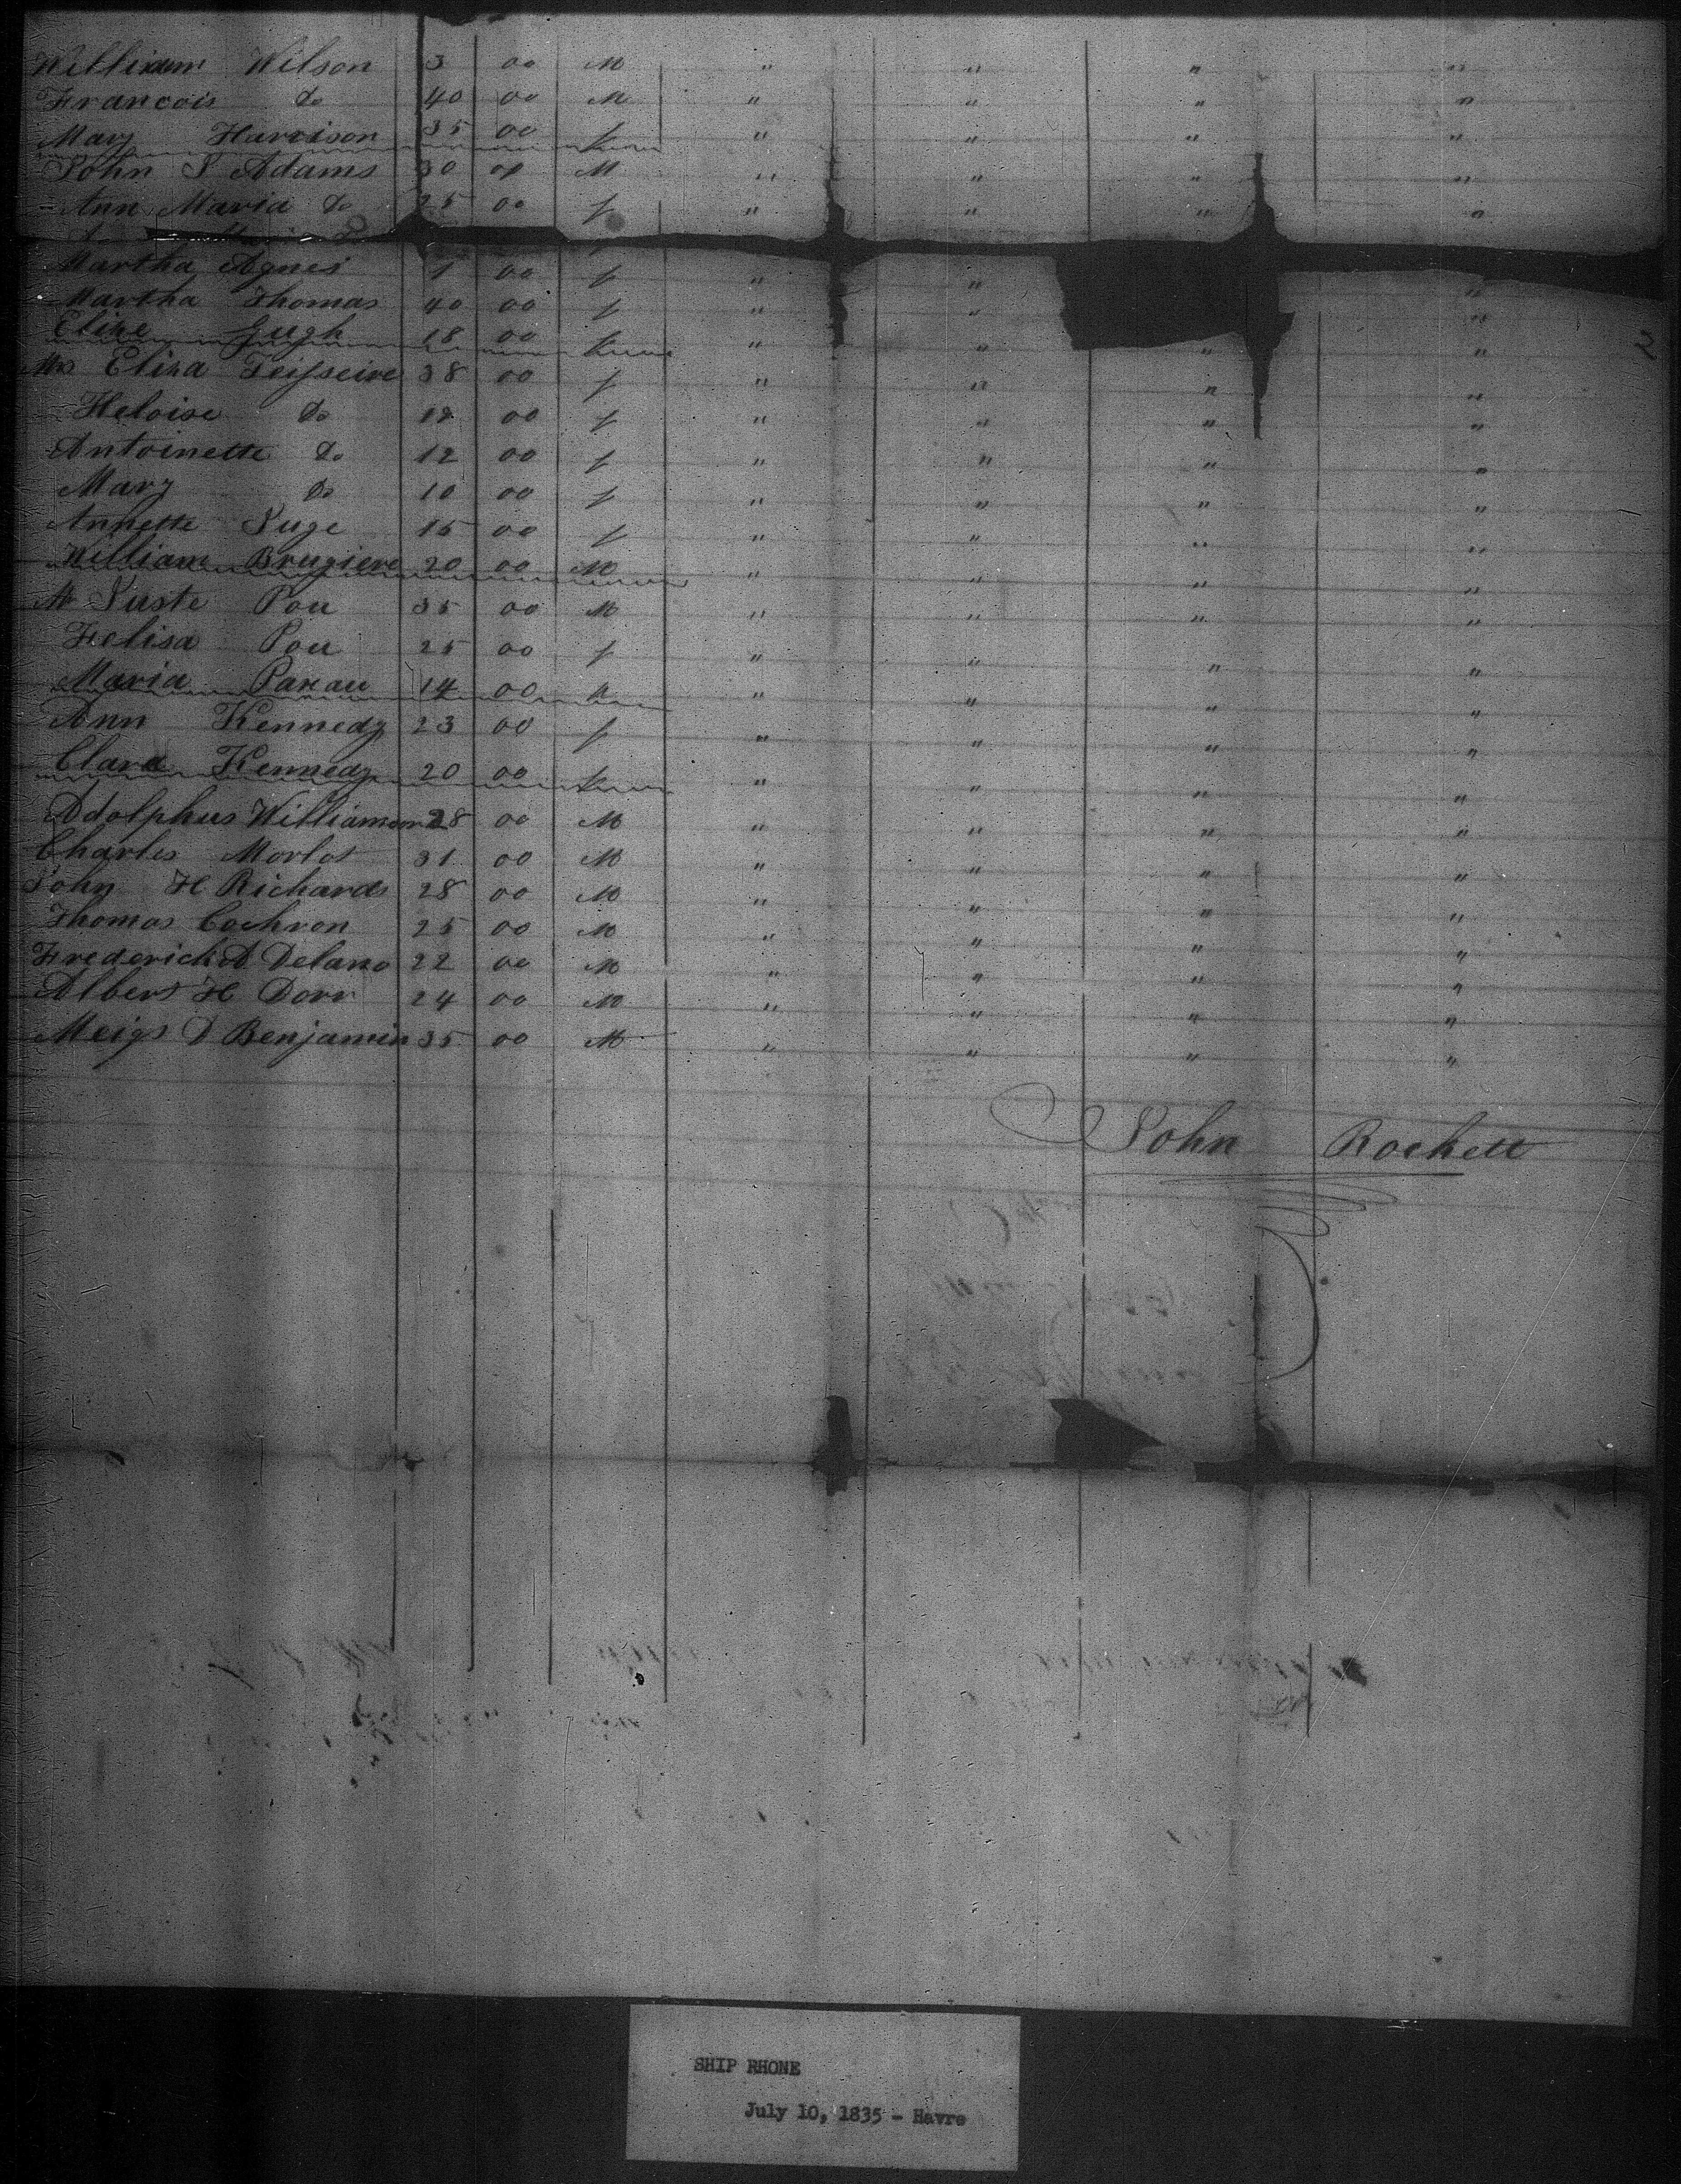 William Wilson 3 00 M " " " "
Francois do 40 00 M " " " "
Mary Harrison 35 00 f " " " "
John S Adams 30 00 M " " " "
Ann Maria do 25 00 f " " " "
Martha Agnes 1 00 f " " "
Martha Thomas 40 00 f " " "
Elize 18 00 f " " " "
Mrs Eliza Teisseire 38 00 f " " " "
Heloise do 00 f " " " "
Antoinette do 12 00 f " " " "
Mary do 10 00 f " " " "
Annette Juge 15 00 f " " " "
William Brugiere 20 00 M " " " "
Mr Juste Pou 35 00 M " " " "
Felisa Pou 25 00 f " " " "
Maria 14 00 f " " " "
Ann Kennedy 23 00 f " " " "
Clara Kennedy 20 00 f " " " "
Adolphus 28 00 M " " " "
Charles Morlot 31 00 M " " " "
John H Richards 28 00 M " " " "
Thomas Cochron 25 00 M " " " "
Frederick A Delano 22 00 M " " " "
Albert H Dorr 24 00 M " " " "
Meigs D Benjamin 35 00 M " " " "
John Rockett
2
SHIP RHONE
July 10, 1835 - Havre